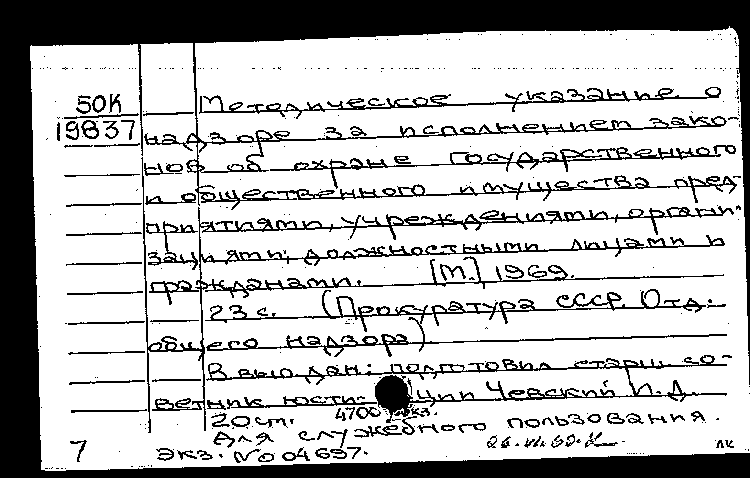 50К
19837
Методическое указание о
надзоре за исполнением зако-
нов об охране государственного
и общественного имущества пред-
приятиями, учреждениями, органи-
зациями, должностными лицами и
гражданами. [М.], 1969.
23 с. (Прокуратура СССР. Отд.
общего надзора)
В вып. дан.: подготовил старш. со-
ветник юсти- ции Чевский И. Д.
20 см. 4700 экз.
Для служебного пользования.
Экз. No 04637.
7
лк